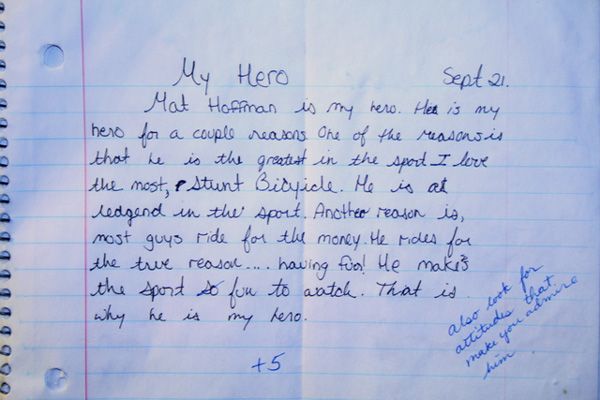 My Hero
Sept 21.
Mat Hoffman is my hero. He is my
hero for a couple reasons One of the reasons is
that he is the greatest in the sport I love
the most, Stunt Bicyicle. He is at
ledgend in the sport. Another reason is,
most guys ride for the money. He rides for
the true reason.... having fun! He makes
the sport so fun to watch. That is
why he is my hero.
+5
also look for
attitudes that
make you admire
him